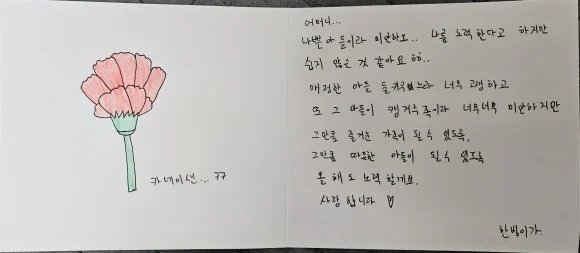 카네이션... ㅋㅋ
어머니...
나쁜 아들이라 미안하오.. 나름 노력한다고 하지만
쉽지 않은 것 같아요 ㅎㅎ..
매정한 아들 들 너무 고생하고
또 그 아들이 캥거루족이라 너무너무 미안하지만
그만큼 즐거운 가족이 될 수 있도록,
그만큼 따뜻한 아들이 될 수 있도록
올 해도 노력 할게요.
사랑합니다 ♡
한범이가.